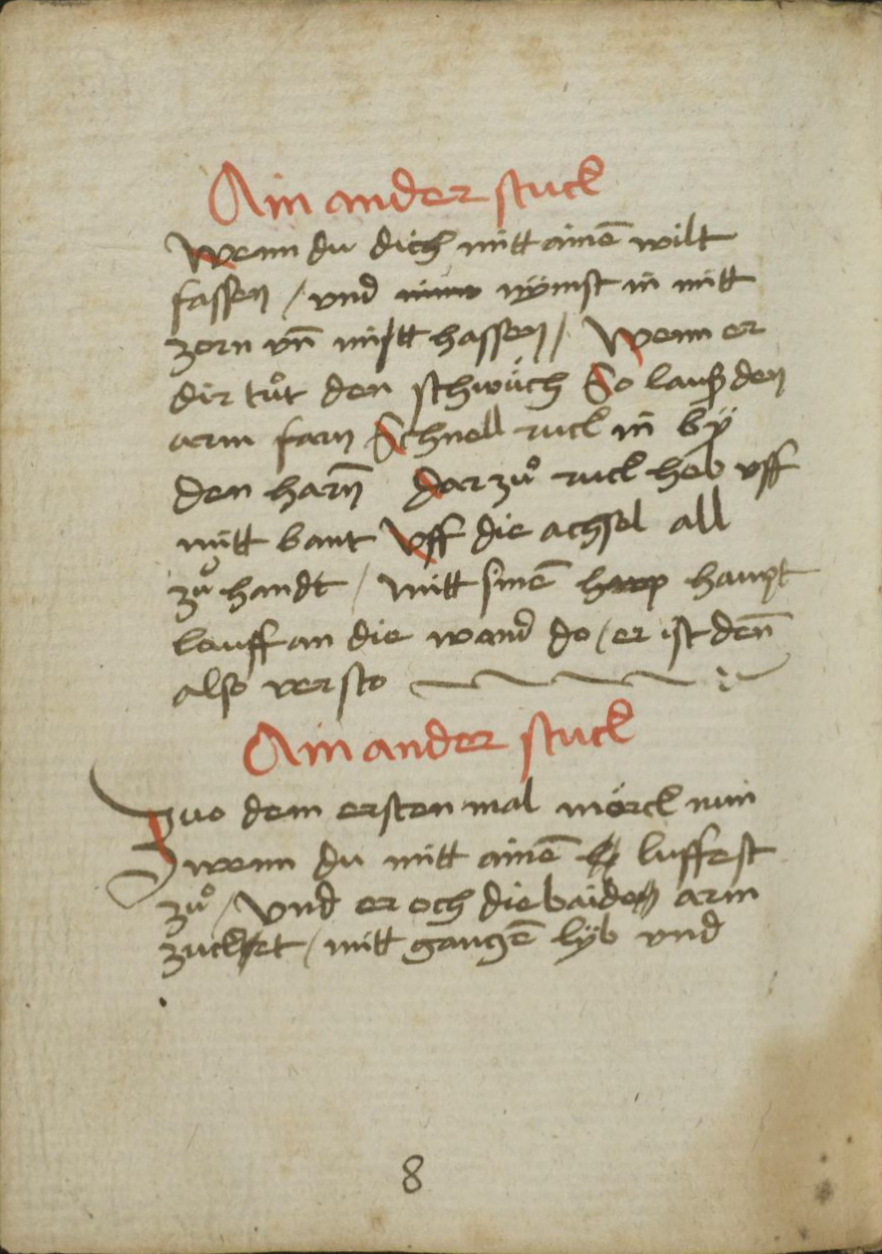 Ain ander stuck
Wenn du dich mitt ainē wilt
fassen / vnd nÿmst in mitt
zorn vn̄ mitt hassen / Wenn er
dir tůt den schwüch So lauß den
arm farn Schnell ruck in bÿ
den harn̄ dar zů ruck heb vff
mitt bant Vff die achsel all
zů handt / mitt sinē haupt
leuff an die wand do / er ist den̄
also versto
Ain ander stuck
Zuo dem ersten mal mörck nun
wenn du mitt ainē luffest
zů / Vnd er och die baiden arm
zucket / mitt gantzē lÿb vnd
8